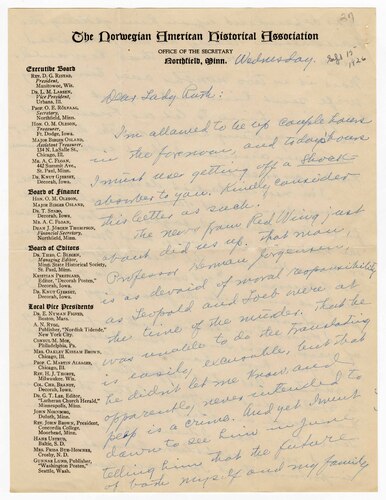 27
The Norwegian American Historical Association
OFFICE OF THE SECRETARY
Northfield, Minn.
Wednesday.
Sept 15
1926
Executive Board
REV. D. G. RISTAD,
President,
Manitowoc, Wis.
DR. L. M. LARSON,
Vice President,
Urbana, Ill.
PROF. O. E. ROLVAAG,
Secretary,
Northfield, Minn.
HON. O. M. OLESON,
Treasurer,
Ft. Dodge, Iowa.
MAJOR BIRGER OSLAND,
Assistant Treasurer,
134 N. LaSalle St.,
Chicago, Ill.
MR. A. C. FLOAN,
442 Summit Ave.,
St. Paul, Minn.
DR. KNUT GJERSET,
Decorah, Iowa.
Board of Finance
HON. O. M. OLESON,
MAJOR BIRGER OSLAND,
DR. T. STABO,
Decorah, Iowa.
MR. A. C. FLOAN,
DEAN J. JÖRGEN THOMPSON,
Financial Secretary,
Northfield, Minn.
Board of Editors
DR. THEO. C. BLEGEN,
Managing Editor,
Minn. State Historical Society,
St. Paul, Minn.
KRISTIAN PRESTGARD,
Editor, "Decorah Posten,"
Decorah, Iowa.
DR. KNUT GJERSET,
Decorah, Iowa.
Local Vice Presidents
DR. E. NYMAN FIGVED,
Boston, Mass.
A. N. RYGG,
Publisher, "Nordisk Tidende,"
New York City.
CONSUL M. MOE,
Philadelphia, Pa.
MRS. OAKLEY KISSAM BROWN,
Chicago, Ill.
PROF. C. MARTIN ALSAGER,
Chicago, Ill.
REV. H. J. THORPE,
Milwaukee, Wis.
COL. CHR. BRANDT,
Decorah, Iowa.
DR. G. T. LEE, Editor,
"Lutheran Church Herald,"
Minneapolis, Minn.
JOHN NORDBYE,
Duluth, Minn.
REV. JOHN BROWN, President
Concordia College,
Moorhead, Minn.
HANS USTRUD,
Baltic, S. D.
MRS. FRIDA BUE-HOMNES,
Crosby, N. D.
GUNNAR LUND, Publisher
"Washington Posten,"
Seattle, Wash.
Dear Lady Ruth:
I'm allowed to be up couple hours
in the forenoon, and today's hours
I must use getting off a Shock
absorber to you. Kindly consider
this letter as such.
The news from Red Wing just
about did us up. That man,
Professor Herman Jorgensen,
is as devoid of moral responsibility
as Leopold and Loeb were at
the time of the murder. That he
was unable to do the translating
is easily excusable, but that
he didn't let me know and
apparently, never intended to
peep is a crime. And yet I went
down to see him in June
telling him that the future
of both myself and my family